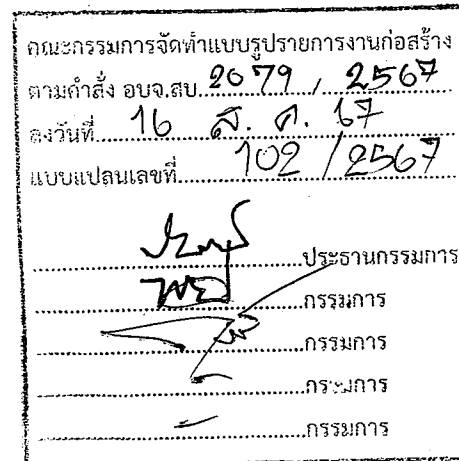 คณะกรรมการจัดทำแบบรูปรายการงานก่อสร้าง
ตามคำสั่ง อบจ.สบ. 2079 / 2567
ลงวันที่ 16 ส.ค. 67
แบบแปลนเลขที่ 102 / 2567
ประธานกรรมการ
กรรมการ
กรรมการ
กรรมการ
กรรมการ